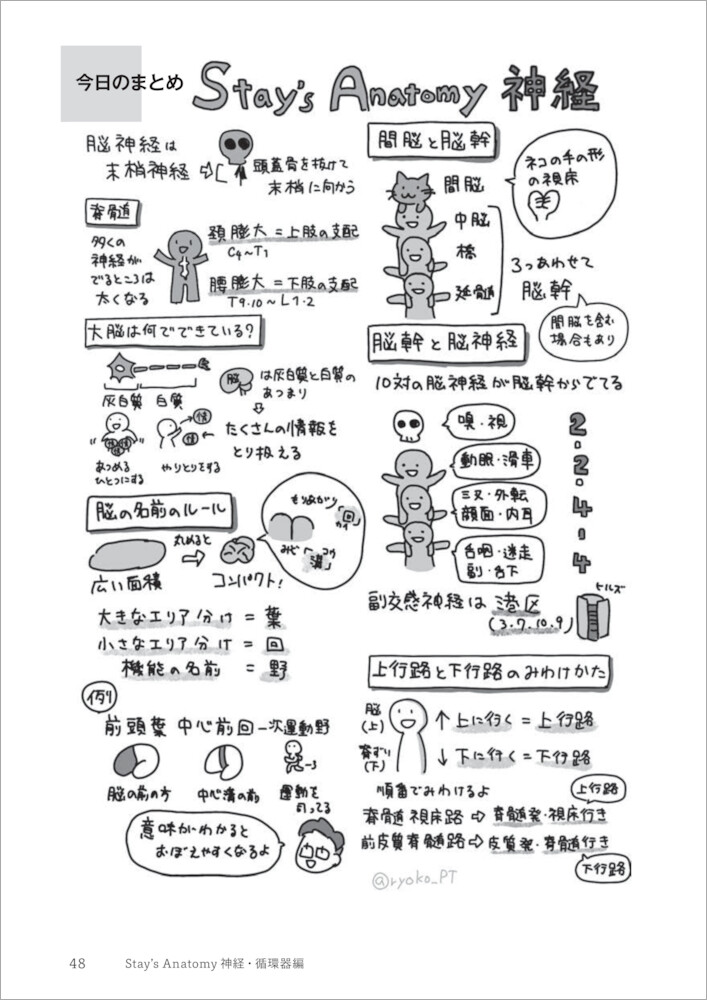 今日のまとめ
Stay's Anatomy 神経
脳神経は
末梢神経
頭蓋骨を抜けて
末梢に向かう
脊髄
多くの
神経が
でるところは
太くなる
頚膨大=上肢の支配
C4〜T1
腰膨大=下肢の支配
T9.10〜L1.2
大脳は何でできている?
灰白質 白質
脳
は灰白質と白質の
あつまり
たくさんの情報を
とり扱える
情
情
あつめる
ひとつにする
やりとりをする
脳の名前のルール
丸めると
広い面積
コンパクト!
もりあがり
「回」
カイ
みぞ「溝」
コウ
大きなエリア分け=葉
小さなエリア分け=回
機能の名前=野
例
前頭葉 中心前回 一次運動野
脳の前の方
中心溝の前
運動を
司ってる
意味がわかると
おぼえやすくなるよ
間脳と脳幹
ネコの手の形
の視床
間脳
中脳
橋
延髄
3つあわせて
脳幹
間脳を含む
場合もあり
脳幹と脳神経
10対の脳神経が脳幹からでてる
嗅・視
動眼・滑車
三叉・外転
顔面・内耳
舌咽・迷走
副・舌下
2・2・4・4
副交感神経は 港区
(3.7.10.9)
ヒルズ
上行路と下行路のみわけかた
脳
(上)
脊ずい
(下)
↑上に行く=上行路
↓下に行く=下行路
順番でみわけるよ
上行路
脊髄視床路⇨脊髄発・視床行き
前皮質脊髄路⇨皮質発・脊髄行き
下行路
@ryoko_PT
48
Stay's Anatomy 神経・循環器編